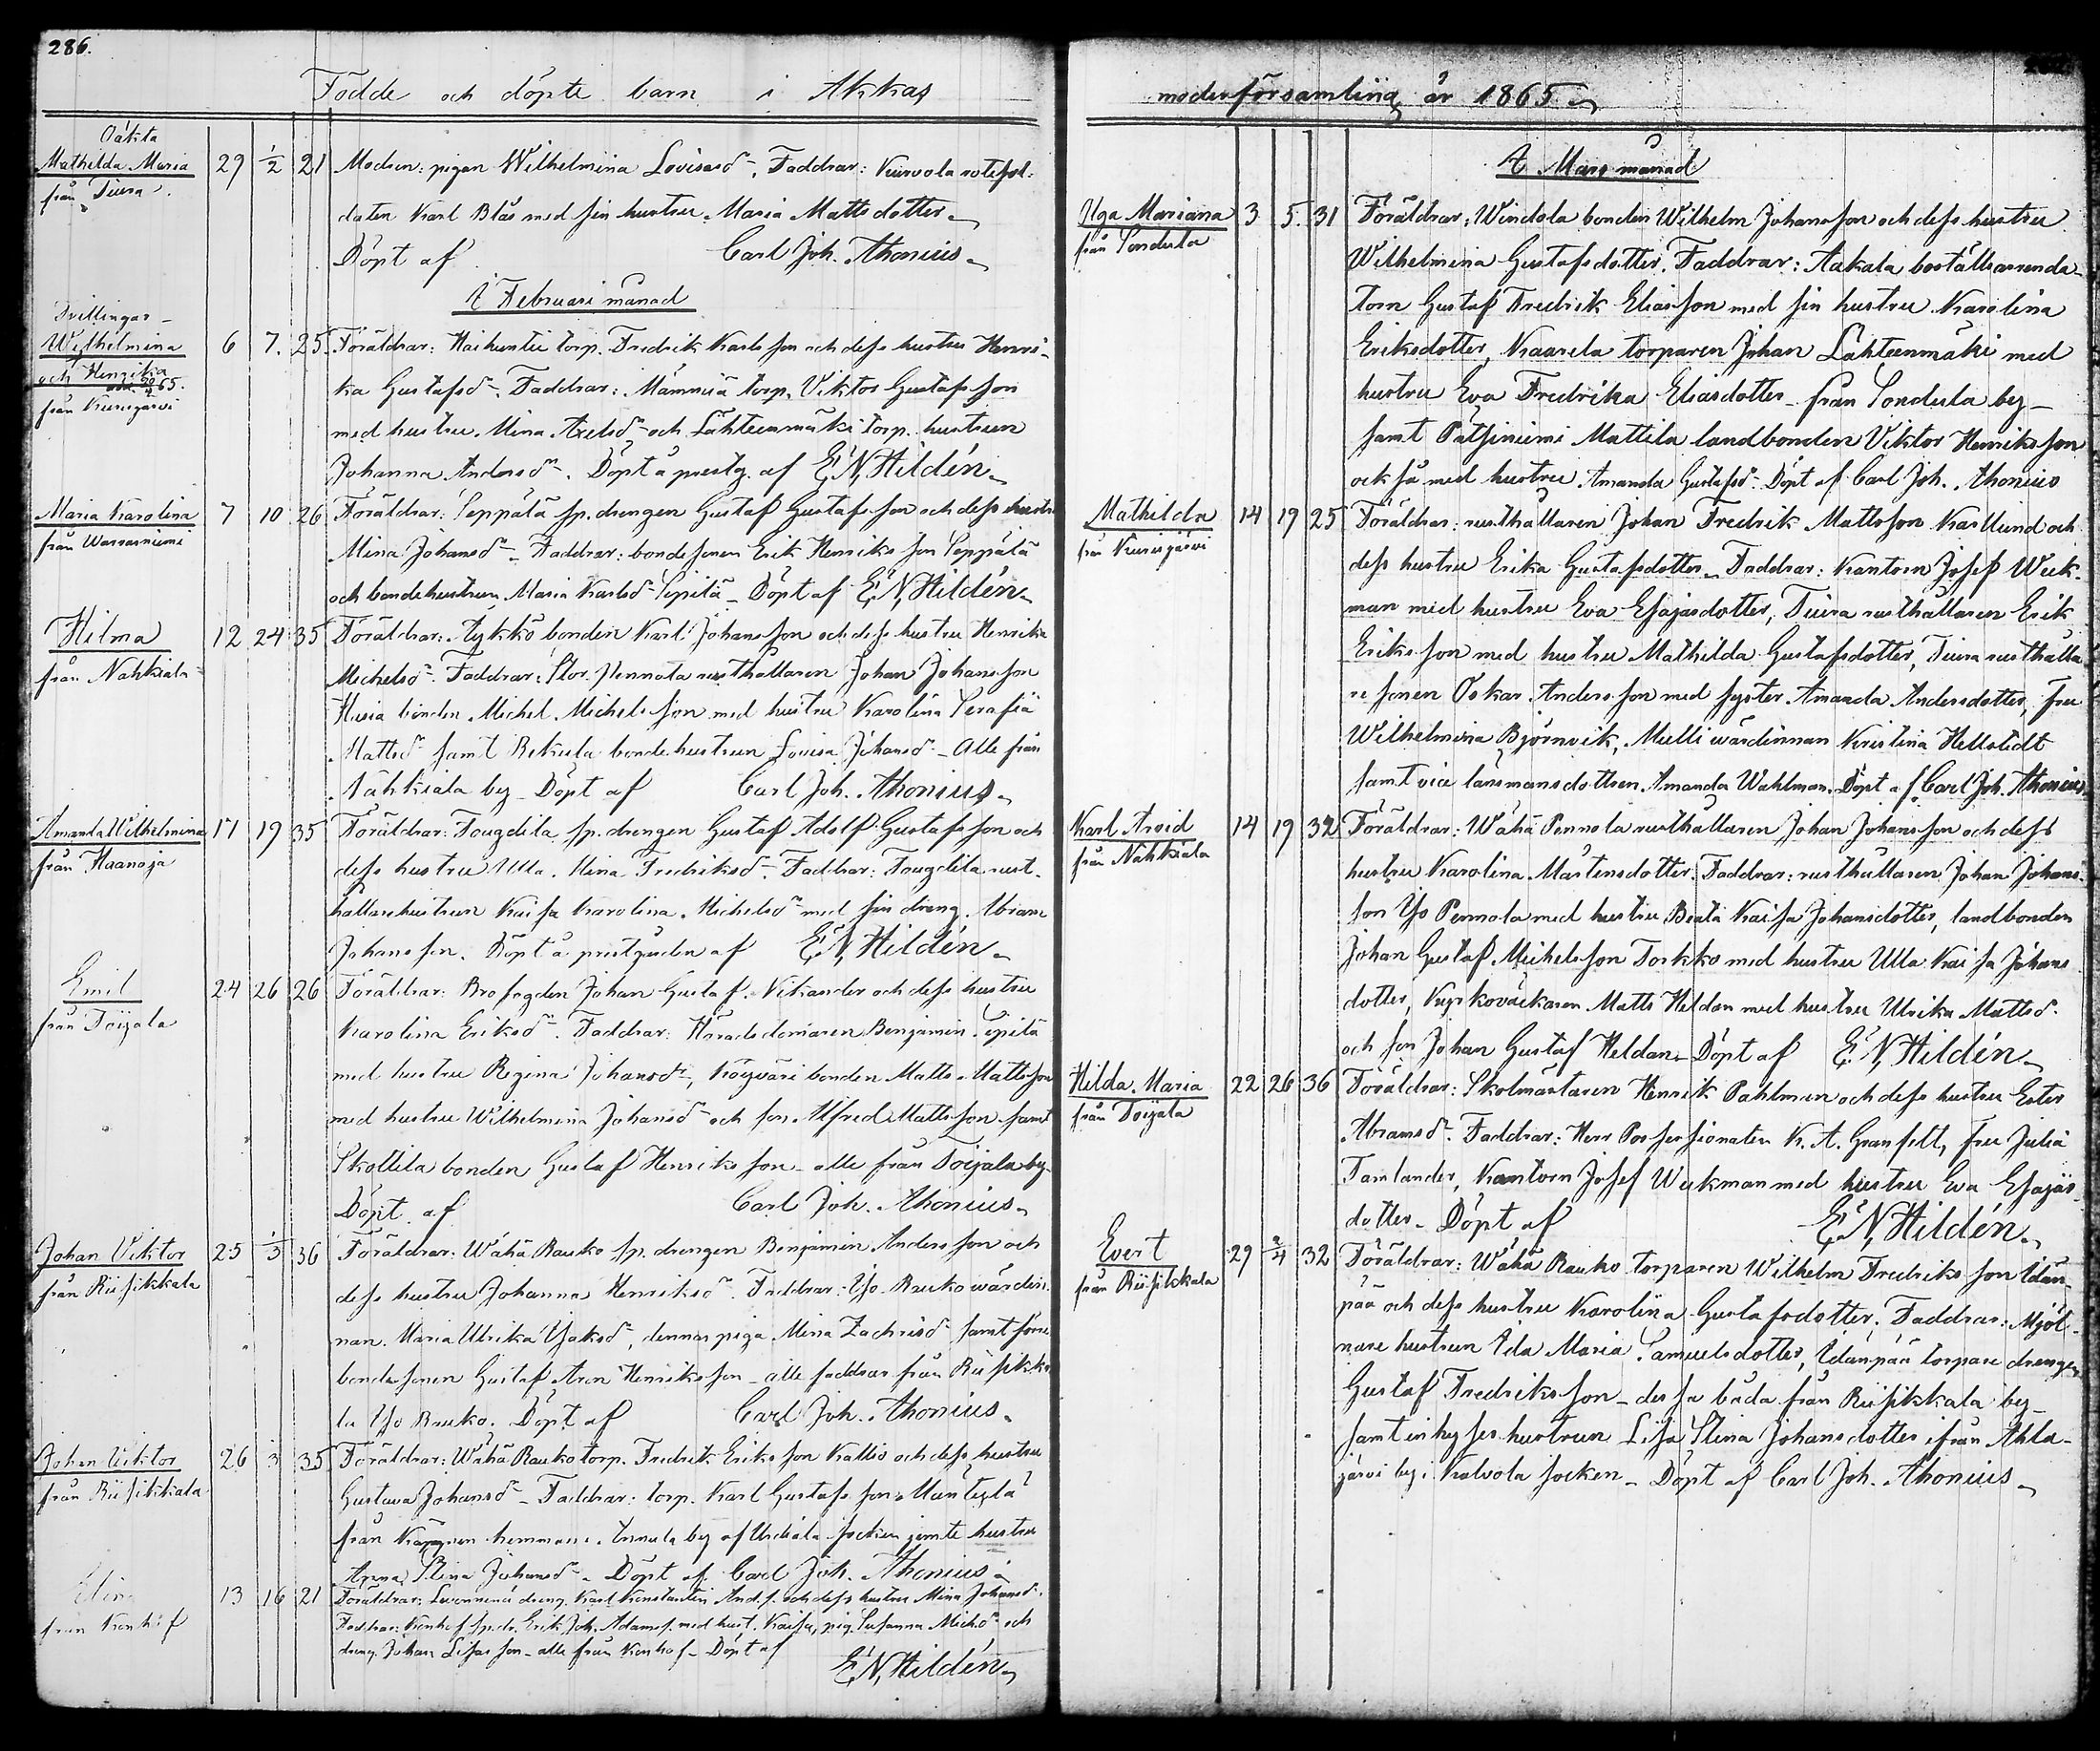 286.
Födde och döpte barn i Akkas
Oäkta
Mathilda Maria 29 1/2 21 Modren: pigan Wilhelmina Lovisasdr. Faddrar: Kurvola rotesol-
från Tiura.
daten Karl Blås med sin hustru Maria Matts dotter
Döpt af Carl Joh. Ahonius
I Februari månad
Tvillingar
Wilhelmina 6 7. 25 Föräldrar: Haihuntie torp. Fredrik Karlsson och dess hustru Henri-
och Henrika
från Kurisjärvi
ka Gustafsdr. Faddrar: Mämmiä torp. Viktor Gustafsson
med hustru Mina Axelsdr och Lähteenmäki torp. hustrun
Johanna Andersdr. Döpt å prestg. af E. N. Hildén
Maria Karolina 7 10 26 Föräldrar: Seppälä sp. drengen Gustaf Gustafsson och dess hustru
från Warrasniemi
Mina Johansdr. Faddrar: bondesonen Erik Henriksson Seppälä
och bondehustrun Maria Karlsdr Sipilä. Döpt af E. N. Hildén
Hilma 12 24 35 Föräldrar: Tykkö bonden Karl Johansson och dess hustru Henrika
från Nahkiala
Michelsdr. Faddrar: Stor Pennola rusthållaren Johan Johansson
bonden Michel Michelsson med hustru Karolina Serafia
Mattsdr samt Rekula bondehustrun Lovisa Johansdr. Alle från
Nahkiala by. Döpt af Carl Joh. Ahonius
Amanda Wilhelmina 17 19 35 Föräldrar: Fougdila sp. drengen Gustaf Adolf Gustafsson och
från Haanoja
dess hustru Ulla Mina Fredriksdr. Faddrar: Fougdila rust-
hållarehustrun Kaisa Karolina Michelsdr med sin dräng Abram
Johansson. Döpt å prestgården af E. N. Hildén
Emil 24 26 26 Föräldrar: Brofogden Johan Gustaf Vikander och dess hustru
från Toijala
Karolina Eriksdr. Faddrar: Häradsdomaren Benjamin Sipilä
med hustru Regina Johansdr, bonden Matts Mattsson
med hustru Wilhelmina Johansdr och son Alfred Mattsson samt
Skottila bonden Gustaf Henriksson alle från Toijala by
Döpt af Carl Joh. Ahonius
Johan Viktor 25 1/3 36 Föräldrar: Wähä Rauko sp. drengen Benjamin Andersson och
från Riisikkala
dess hustru Johanna Henriksdr. Faddrar: Iso Rauko wärdin-
nan Maria Ulrika Isaksdr, dennes piga Mina Zachrisdr samt
bondesonen Gustaf Aron Henriksson alle faddrar från Riisikka-
la Iso Rauko. Döpt af Carl Joh. Ahonius
Johan Viktor 26 3 35 Föräldrar: Wähä Rauko torp. Fredrik Eriksson Kallio och dess hustru
från Riisikkala
Gustava Johansdr. Faddrar: torp. Karl Gustafsson Mäntylä
från hemman i Annula by af Urdiala socken jemte hustru
Anna Stina Johansdr. Döpt af Carl Joh. Ahonius
Elin 13 16 21 Föräldrar: dreng. Karl Konstantin And.s. och dess hustru Mina Johansdr.
från Konhof
Faddrar: Konhof sp.dr. Erik Joh. Adams. med hust. Kaisa, pig. Susanna Michdr och
dreng. Johan alle från Konhof. Döpt af
E. N. Hildén
moderförsamling år 1865
I Mars månad
Olga Mariana 3 5. 31 Föräldrar: Windola bonden Wilhelm Johansson och dess hustru
från Sondula
Wilhelmina Gustafsdotter. Faddrar: Aakala boställsarrenda-
torn Gustaf Fredrik Eliasson med sin hustru Karolina
Eriksdotter, Kaarela torparen Johan Lähteenmäki med
hustru Eva Fredrika Eliasdotter från Sondula by
samt Patsiniemi Mattila landbonden Viktor Henriksson
ock så med hustru Amanda Gustafsdr. Döpt af Carl Joh. Ahonius
Mathilda 14 19 25 Föräldrar: rusthållaren Johan Fredrik Mattsson Karlund och
från Kurisjärvi
dess hustru Erika Gustafsdotter. Faddrar: Kantorn Josef Weck-
man med hustru Eva Esajasdotter, Tiura rusthållaren Erik
Eriksson med hustru Mathilda Gustafsdotter, Tiura rusthålla-
re sonen Oskar Andersson med syster Amanda Andersdotter, fru
Wilhelmina Björnvik, Mulli wärdinnan Kristina Hellstedt
samt vice länsmansdottren Amanda Wahlman. Döpt af Carl Joh. Ahonius
Karl Arvid 14 19 32 Föräldrar: Wähä Pennola rusthållaren Johan Johansson och dess
från Nahkiala
hustru Karolina Mårtensdotter. Faddrar: rusthållaren Johan Johans-
son Iso Pennola med hustru Beata Kaisa Johansdotter, landbonden
Johan Gustaf Michelsson Torkko med hustru Ulla Kaisa Johans
dotter, Matts Heldan med hustru Ulrika Mattsdr.
och son Johan Gustaf Heldan. Döpt af E. N. Hildén
Hilda Maria 22 26 36 Föräldrar: Skolmästaren Henrik Pahlman och dess hustru Ester
från Toijala
Abramsdr. Faddrar: Herr Possessionaten K. A. Granfelt, fru Julia
Tamlander, Kantorn Josef Weckman med hustru Eva Esajas
dotter. Döpt af E. N. Hildén
Evert 29 2/4 32 Föräldrar: Wähä Rauko torparen Wilhelm Fredriksson Idän-
från Riisikkala
pää och dess hustru Karolina Gustafsdotter. Faddrar: Mjöl-
nare hustrun Ida Maria Samuelsdotter, Idänpää torpare drengen
Gustaf Fredriksson dessa båda från Riisikkala by
samt inhyses hustrun Lisa Stina Johansdotter ifrån Ahla-
järvi by i Kalvola socken. Döpt af Carl Joh. Ahonius